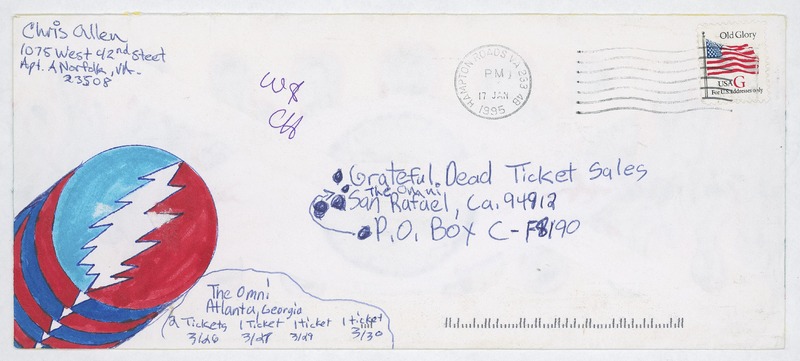 Chris Allen
1075 West 42nd Street
Apt. A Norfolk, VA.
23508
HAMPTON ROADS VA 233 4B
PM
17 JAN
1995
Old Glory
USA G
For U.S. addresses only
Grateful Dead Ticket Sales
The Omni
San Rafael, Ca. 94912
P.O. Box C-F8190
The Omni
Atlanta, Georgia
(2 Tickets 1 Ticket 1 ticket 1 ticket
3/26 3/27 3/29 3/30